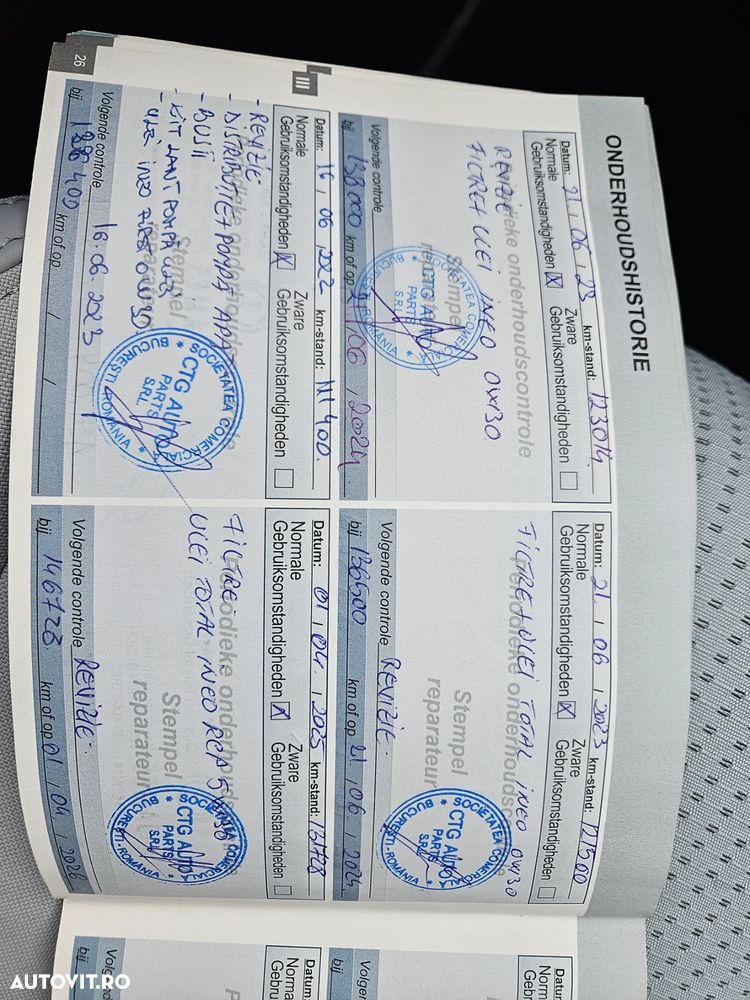 ONDERHOUDSHISTORIE
Datum: 21 / 06 / 23 km-stand: 123014
Normale Gebruiksomstandigheden X Zware Gebruiksomstandigheden
REVIZIE
FILTRE+ULEI INEO 0W30
Periodieke onderhoudscontrole
Stempel
SOCIETATEA COMERCIALA
CTG AUTO
PARTS
S.R.L.
BUCURESTI - ROMANIA
Volgende controle
bij 138000 km of op 21 / 06 / 2024
Datum: 16 / 06 / 2022 km-stand: 111400.
Normale Gebruiksomstandigheden X Zware Gebruiksomstandigheden
- REVIZIE
- DISTRIBUTIE+POMPA APA
- BUJII
- KIT LANT POMPA ULEI
- ULEI INEO FIRST 0W30
Stempel
SOCIETATEA COMERCIALA
CTG AUTO
PARTS
S.R.L.
BUCURESTI - ROMANIA
Volgende controle 16.06.2023
bij 126400 km of op / /
26
III
Datum: 21 / 06 / 2023 km-stand: 121500
Normale Gebruiksomstandigheden X Zware Gebruiksomstandigheden
FILTRE+ULEI TOTAL INEO 0W30
Periodieke onderhoudscontrole
Stempel
reparateur
SOCIETATEA COMERCIALA
CTG AUTO
PARTS
S.R.L.
BUCURESTI-ROMANIA
Volgende controle REVIZIE.
bij 136500 km of op 21 / 06 / 2024
Datum: 01 / 04 / 2025 km-stand: 131728
Normale Gebruiksomstandigheden X Zware Gebruiksomstandigheden
FILTRE
ULEI TOTAL INEO RCP 5W30
Periodieke onderhoudscontrole
Stempel
reparateur
SOCIETATEA COMERCIALA
CTG AUTO
PARTS
S.R.L.
BUCURESTI-ROMANIA
Volgende controle REVIZIE.
bij 146728 km of op 01 / 04 / 2026
Datum:
Normale
Volgende
bij
Datum:
Normale
Volgende
bij
AUTOVIT.RO